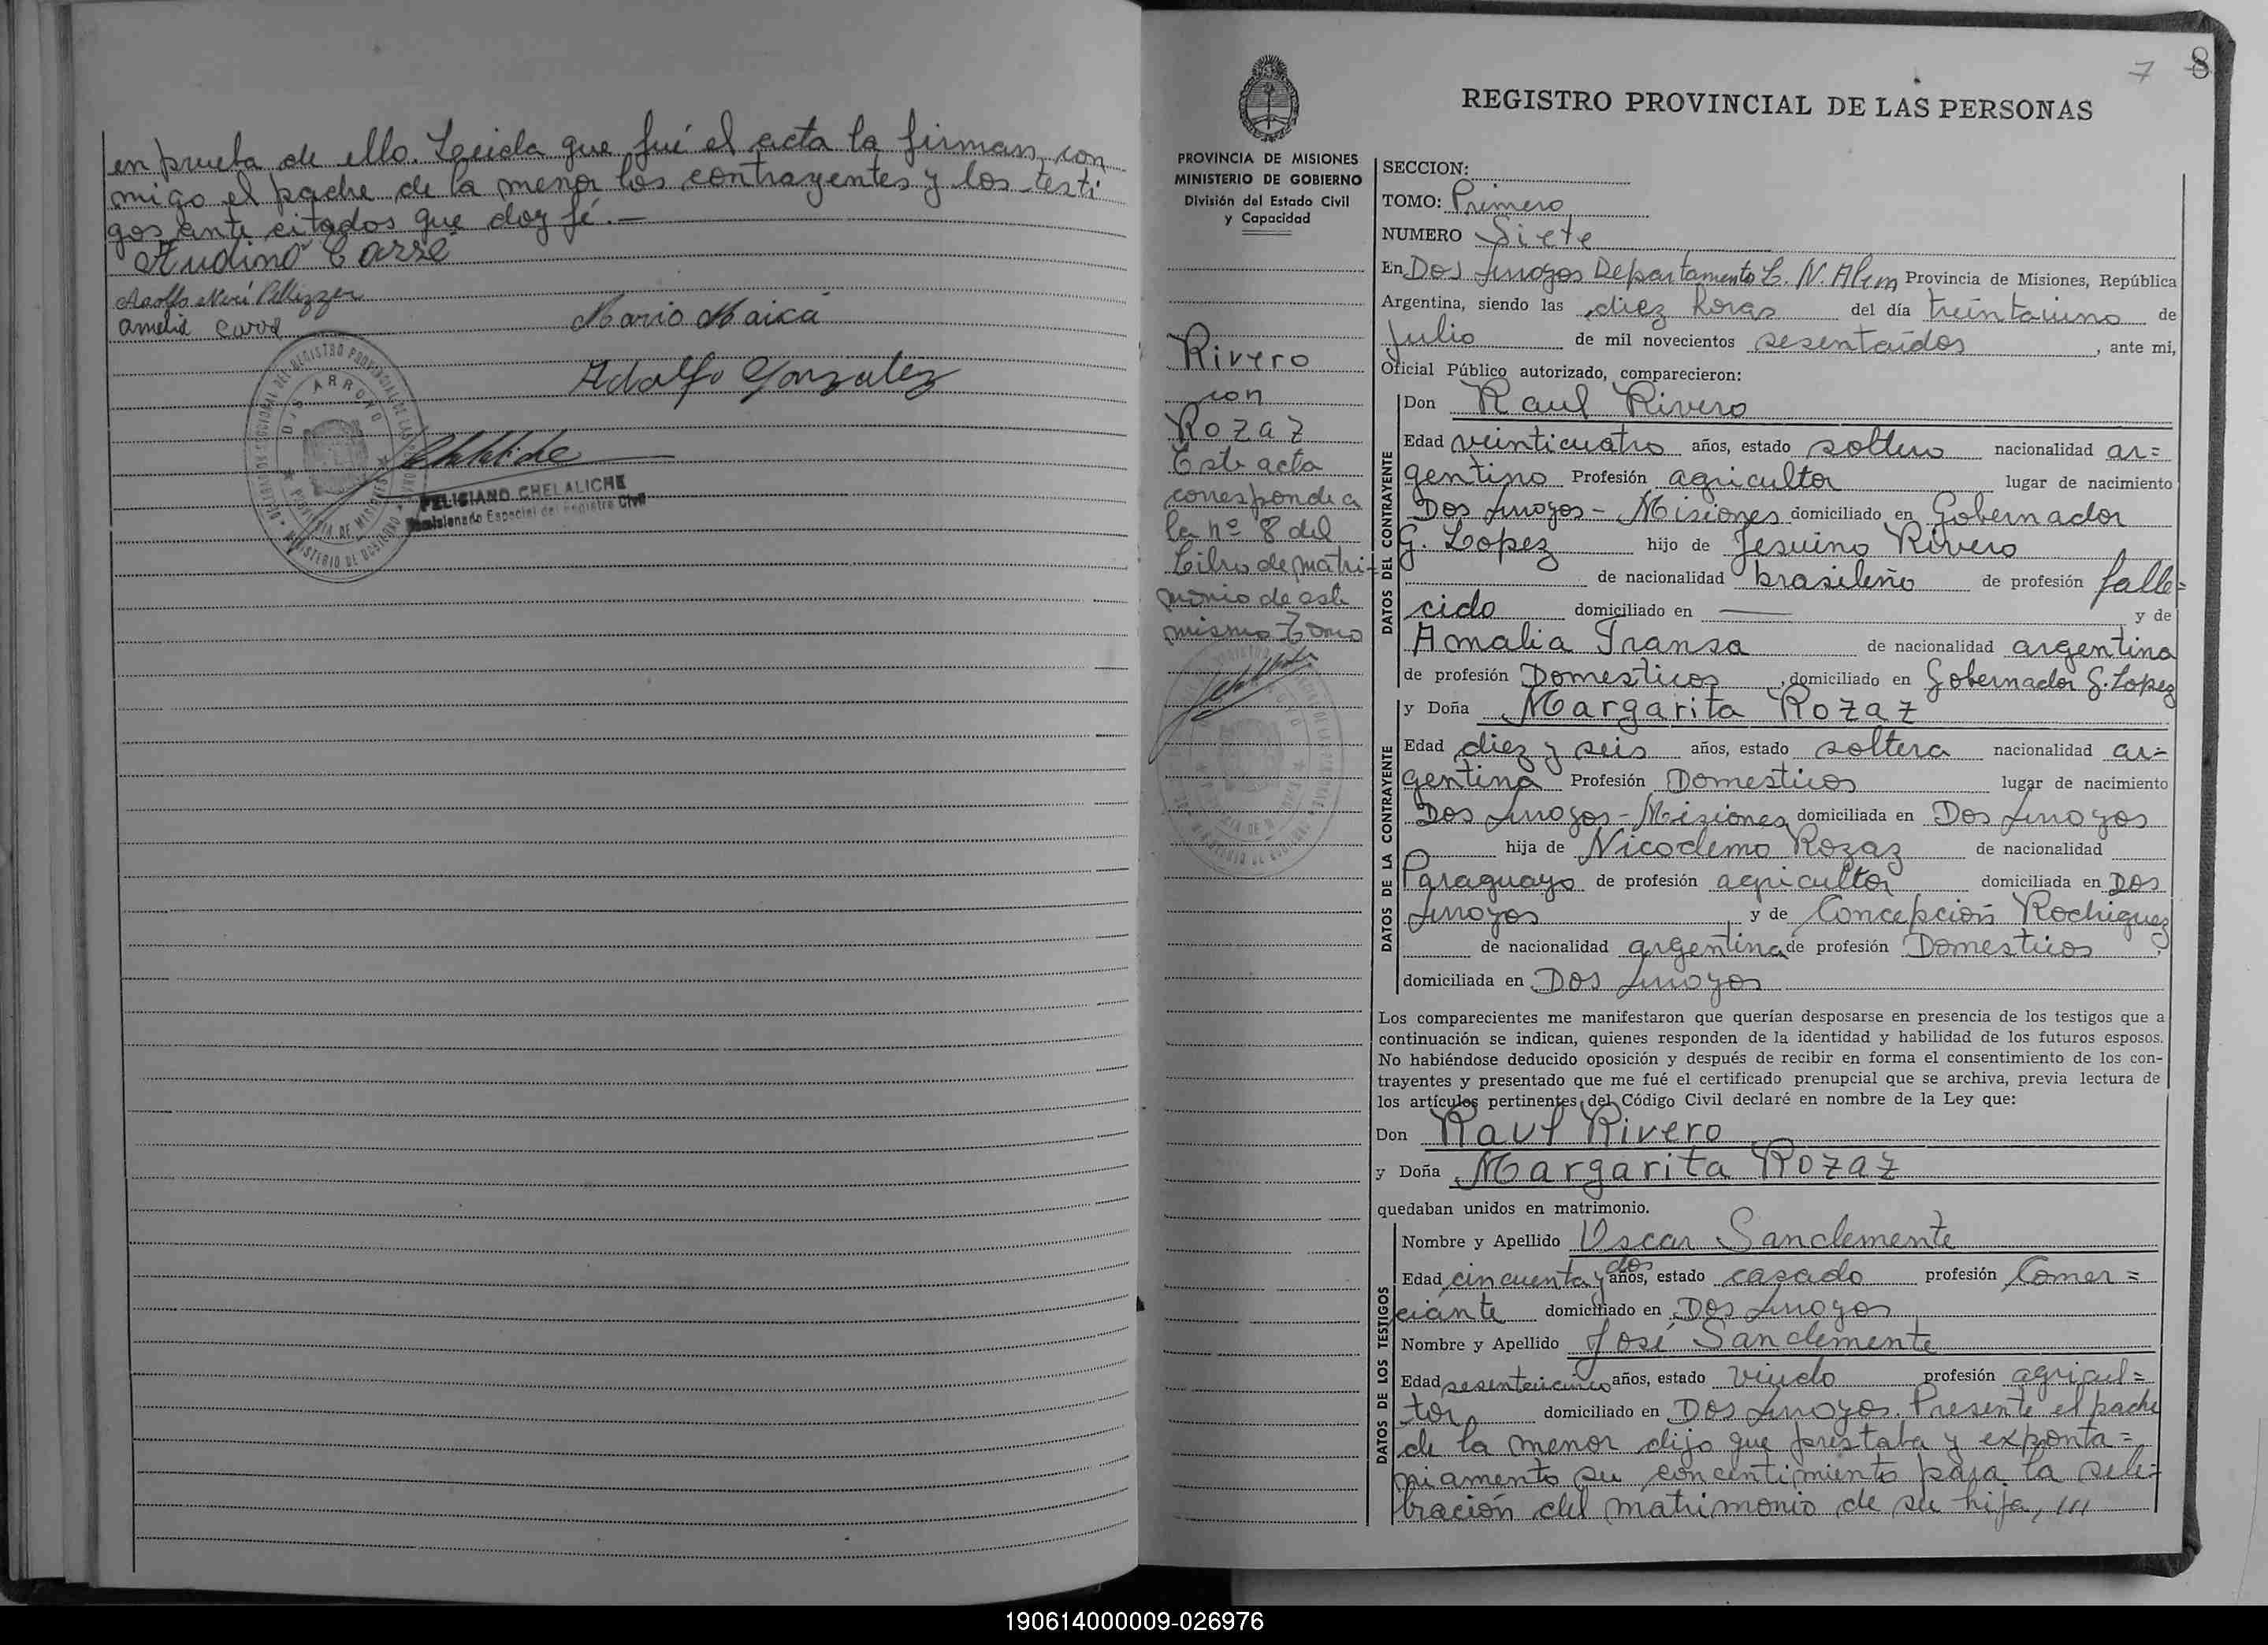 en prueba de ello. Leida que fué el acta la firman con
migo el padre de la menor los contrayentes y los testi
gos ante citados que doy fé.—
Adolfo Neri Pellizzer
Mario Maica
Adolfo Gonzalez
DOS ARROYOS
PROVINCIA DE MISIONES
MINISTERIO DE GOBIERNO
FELICIANO CHELALICHE
Comisionado Especial del Registro Civil
7 8
REGISTRO PROVINCIAL DE LAS PERSONAS
PROVINCIA DE MISIONES
MINISTERIO DE GOBIERNO
División del Estado Civil
y Capacidad
Rivero
con
Rozaz
Este acta
corresponde a
la nº 8 del
Libro de matri-
monio de este
mismo Tomo
SECCION:
TOMO: Primero
NUMERO Siete
En Dos Arroyos Departamento L. N. Alem Provincia de Misiones, República
Argentina, siendo las diez horas del día treintaiuno de
Julio de mil novecientos sesentaidos, ante mi,
Oficial Público autorizado, comparecieron:
DATOS DEL CONTRAYENTE
Don Raul Rivero
Edad veinticuatro años, estado soltero nacionalidad ar=
gentino Profesión agricultor lugar de nacimiento
Dos Arroyos - Misiones domiciliado en Gobernador
G. Lopez hijo de Jesuino Rivero
de nacionalidad brasileño de profesión falle=
cido domiciliado en — y de
Amalia Transa de nacionalidad argentina
de profesión Domesticos, domiciliado en Gobernador G. Lopez
DATOS DE LA CONTRAYENTE
y Doña Margarita Rozaz
Edad diez y seis años, estado soltera nacionalidad ar=
gentina Profesión Domesticos lugar de nacimiento
Dos Arroyos - Misiones domiciliada en Dos Arroyos
hija de Nicodemo Rozaz de nacionalidad
Paraguayo de profesión agricultor domiciliada en Dos
Arroyos y de Concepción Rodriguez
de nacionalidad argentina de profesión Domesticos,
domiciliada en Dos Arroyos
Los comparecientes me manifestaron que querían desposarse en presencia de los testigos que a
continuación se indican, quienes responden de la identidad y habilidad de los futuros esposos.
No habiéndose deducido oposición y después de recibir en forma el consentimiento de los con-
trayentes y presentado que me fué el certificado prenupcial que se archiva, previa lectura de
los artículos pertinentes del Código Civil declaré en nombre de la Ley que:
Don Raul Rivero
y Doña Margarita Rozaz
quedaban unidos en matrimonio.
DATOS DE LOS TESTIGOS
Nombre y Apellido Oscar Sanclemente
Edad cincuenta y dos años, estado casado profesión Comer=
ciante domiciliado en Dos Arroyos
Nombre y Apellido José Sanclemente
Edad sesentaicinco años, estado viudo profesión agricul=
tor domiciliado en Dos Arroyos. Presente el padre
de la menor dijo que prestaba y exponta=
niamento su concentimiento para la sele=
bración del matrimonio de su hija, ///
190614000009-026976